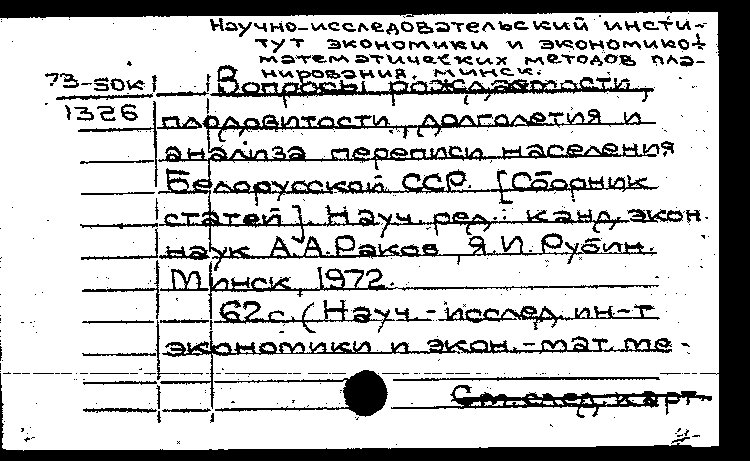 Научно-исследовательский инсти-
тут экономики и экономико-
математических методов пла-
нирования. Минск.
73-50к Вопросы рождаемости,
1326 плодовитости, долголетия и
анализа переписи населения
Белорусской ССР. [Сборник
статей]. Науч. ред.: канд. экон.
наук А.А.Раков, Я.И.Рубин.
Минск, 1972.
62 с. (Науч.-исслед. ин-т
экономики и экон.-мат. ме-
См. след. карт.